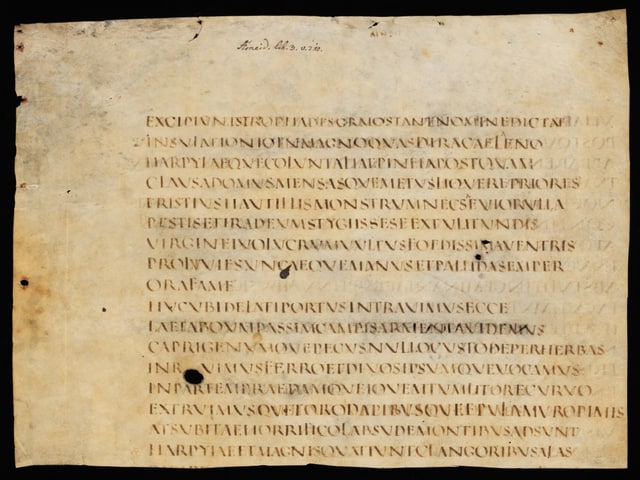 Aeneid. lib. 3. v. 210.
EXCIPIVNTSTROPHADESGRAIOSTANTNOMINEDICTAE
INSVLAEIONIOINMAGNOQVASDIRACAELENO
HARPYIAEQVECOLVNTALIAEPHINEIAPOSTQVAM
CLAVSADOMVSMENSASQVEMETVSLIQVEREPRIORES
TRISTIVSHAVTILLISMONSTRVMNECSEVIORVLLA
PESTISETIRADEVMSTYGIISSESEEXTVLITVNDIS
VIRGINEIVOLVCRVMVVLTVSFOEDISSIMAVENTRIS
PROLVVIESVNCAEQVEMANVSETPALLIDASEMPER
ORAFAME
HVCVBIDELATIPORTVSINTRAVIMVSECCE
LAETABOVMPASSIMCAMPISARMENTAVIDEMVS
CAPRIGENVMQVEPECVSNVLLOCVSTODEPERHERBAS
INRVIMVSFERROETDIVOSIPSVMQVEVOCAMVS
INPARTEMPRAEDAMQVEIOVEMTVMLITORECVRVO
EXTRVIMVSQVETORODAPIBVSQVEEPVLAMVROPIMIS
ATSVBITAEHORRIFICOLABSVDEMONTIBVSADSVNT
HARPYIAEETMAGNISQVATIVNTCLANGORIBVSALAS